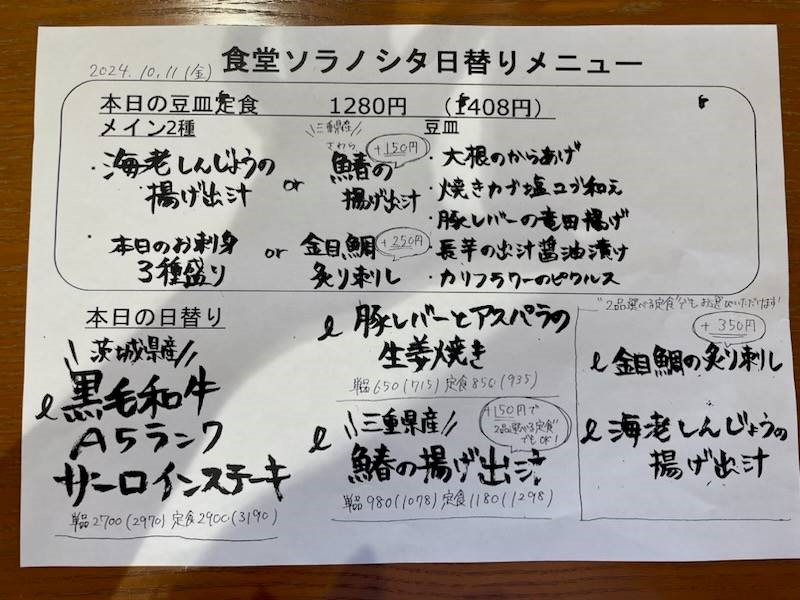 2024.10.11(金)
食堂ソラノシタ日替りメニュー
本日の豆皿定食 1280円 (1408円)
メイン2種
・海老しんじょうの
揚げ出汁
or
三重県産
さわら
+150円
鰆の
揚げ出汁
・本日のお刺身
3種盛り
or
金目鯛
+250円
炙り刺し
豆皿
・大根のからあげ
・焼きカブ塩コブ和え
・豚レバーの竜田揚げ
・長芋の出汁醤油漬け
・カリフラワーのピクルス
本日の日替り
茨城県産
黒毛和牛
A5ランク
サーロインステーキ
単品2700(2970) 定食2900(3190)
豚レバーとアスパラの
生姜焼き
単品650(715) 定食850(935)
三重県産
+150円で
"2品選べる定食"
でもOK!
鰆の揚げ出汁
単品980(1078) 定食1180(1298)
"2品選べる定食"でもお選びいただけます
+350円
金目鯛の炙り刺し
海老しんじょうの
揚げ出汁